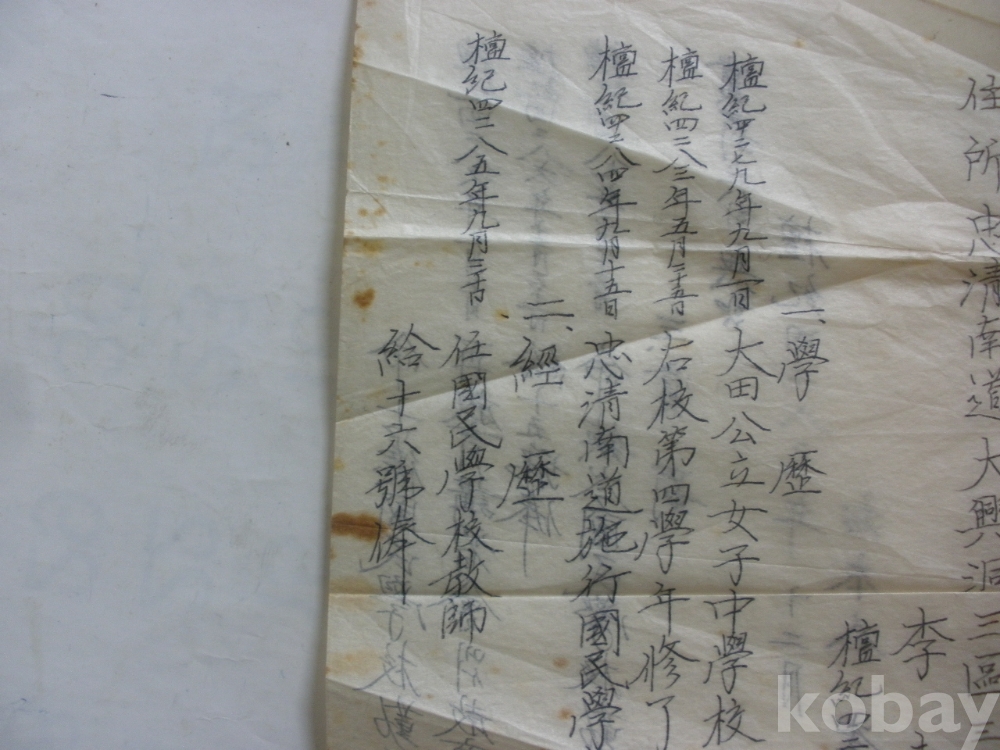 住所忠清南道大興洞三區三
李
檀紀四三
一、學歷
檀紀四二七九年九月一日大田公立女子中學校
檀紀四二八三年五月二十五日右校第四學年修了
檀紀四二八四年九月十五日忠清南道施行國民學
二、經歷
檀紀四二八五年九月三十日任國民學校敎師
給十六號俸
kobay